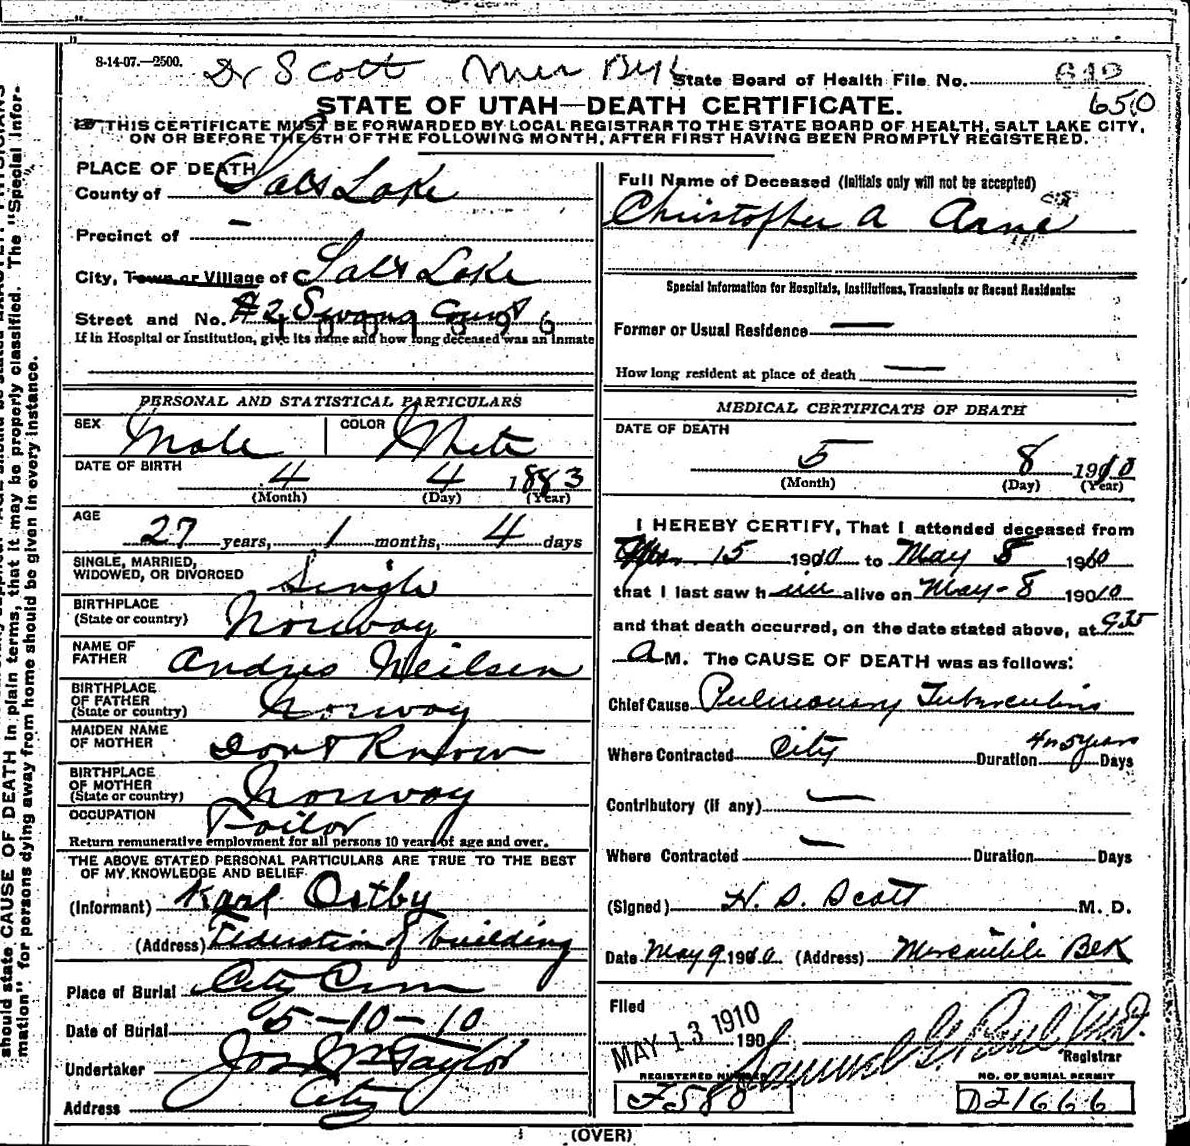 8-14-07.—2500.
Dr Scott Mer Blk
State Board of Health File No. 650
STATE OF UTAH—DEATH CERTIFICATE.
THIS CERTIFICATE MUST BE FORWARDED BY LOCAL REGISTRAR TO THE STATE BOARD OF HEALTH, SALT LAKE CITY,
ON OR BEFORE THE 5TH OF THE FOLLOWING MONTH, AFTER FIRST HAVING BEEN PROMPTLY REGISTERED.
PLACE OF DEATH
County of Salt Lake
Precinct of —
City, Town or Village of Salt Lake
Street and No. #2 Swans Court
If in Hospital or Institution, give its name and how long deceased was an inmate
PERSONAL AND STATISTICAL PARTICULARS
SEX Male COLOR White
DATE OF BIRTH 4 4 1883
(Month) (Day) (Year)
AGE
27 years, 1 months, 4 days
SINGLE, MARRIED,
WIDOWED, OR DIVORCED Single
BIRTHPLACE
(State or country) Norway
NAME OF
FATHER Andrus Neilsen
BIRTHPLACE
OF FATHER
(State or country) Norway
MAIDEN NAME
OF MOTHER Dont Know
BIRTHPLACE
OF MOTHER
(State or country) Norway
OCCUPATION Tailor
Return remunerative employment for all persons 10 years of age and over.
THE ABOVE STATED PERSONAL PARTICULARS ARE TRUE TO THE BEST
OF MY KNOWLEDGE AND BELIEF
(Informant) Karl Ostby
(Address) Federation of building
Place of Burial City Cem
Date of Burial 5-10-10
Undertaker Jos Wm Taylor
Address City
Full Name of Deceased (Initials only will not be accepted)
Christopher A Arne
Special Information for Hospitals, Institutions, Transients or Recent Residents:
Former or Usual Residence —
How long resident at place of death —
MEDICAL CERTIFICATE OF DEATH
DATE OF DEATH
5 8 1910
(Month) (Day) (Year)
I HEREBY CERTIFY, That I attended deceased from
15 1910 to May 8 1910
that I last saw him alive on May-8 1910
and that death occurred, on the date stated above, at 935
A M. The CAUSE OF DEATH was as follows:
Chief Cause Pulmonary Tuberculosis
Where Contracted City Duration 4 or 5 years Days
Contributory (if any) —
Where Contracted — Duration Days
(Signed) H. S. Scott M. D.
Date May 9 1910 (Address) Mercantile Blk
Filed
MAY 13 1910 190
Samuel G. Paul M.D.
Registrar
REGISTERED NUMBER NO. OF BURIAL PERMIT
F580 D21666
(OVER)
should state CAUSE OF DEATH in plain terms, that it may be properly classified. The "Special Infor-
mation" for persons dying away from home should be given in every instance.